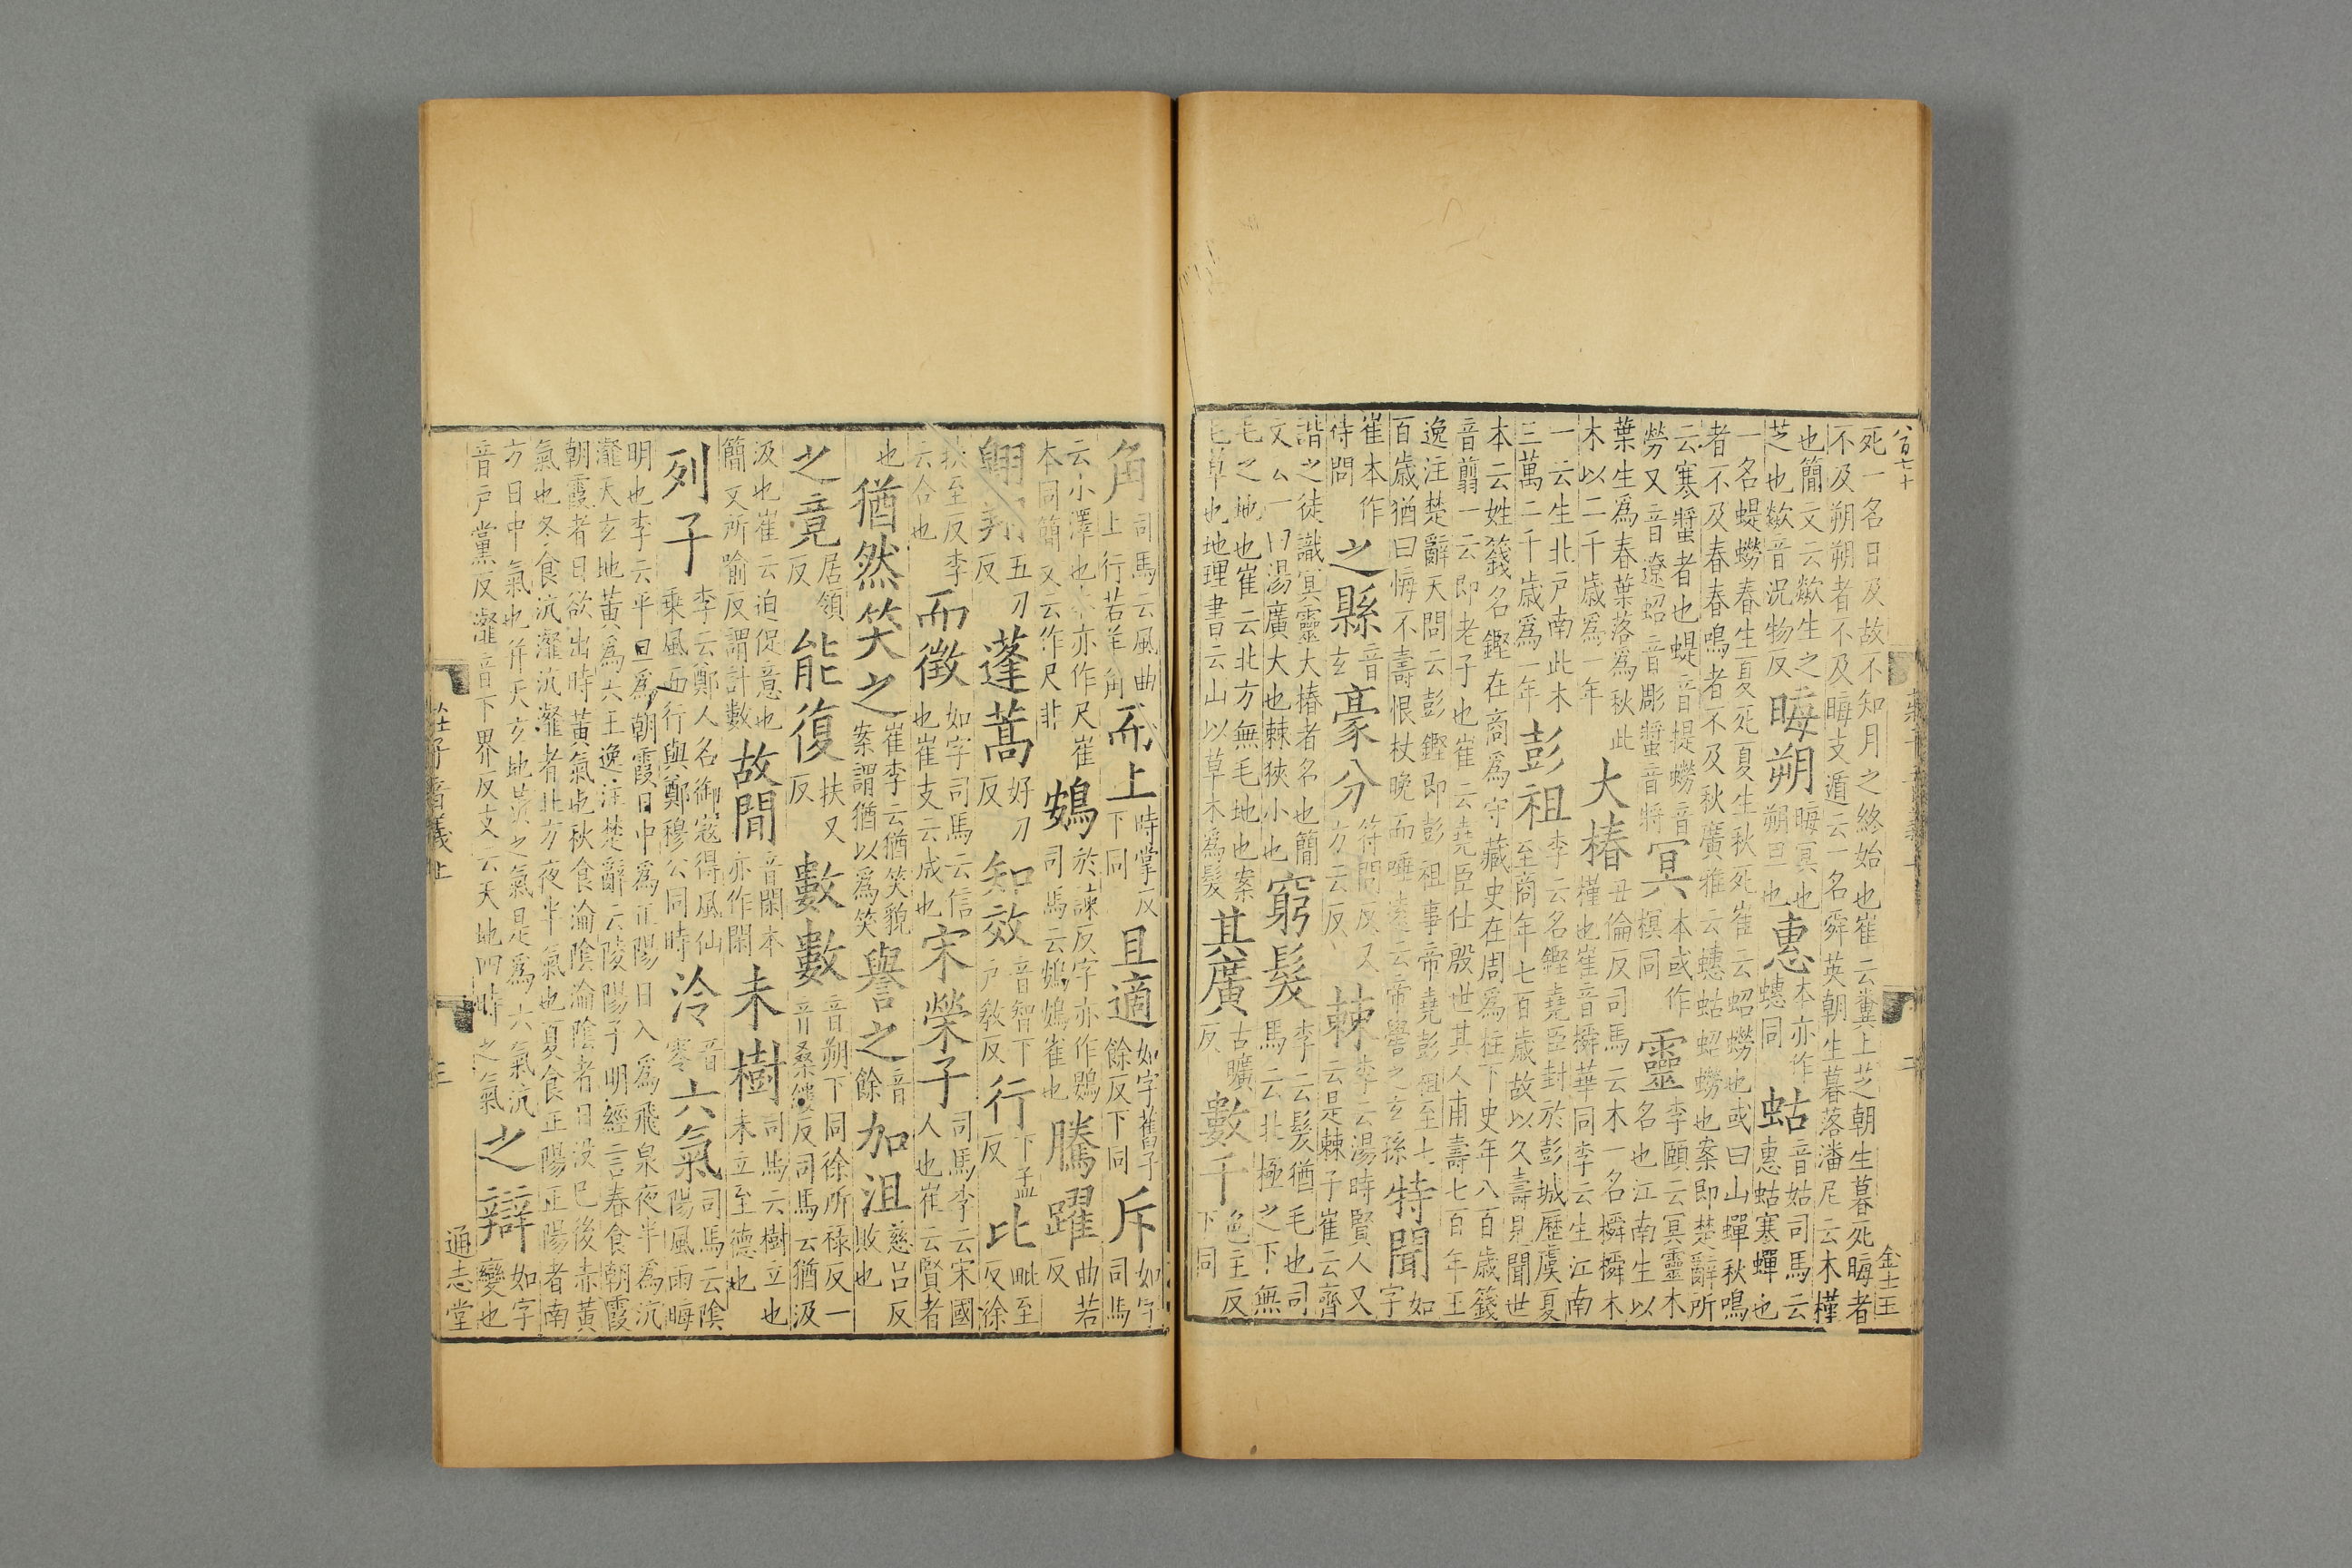 八百七十 金士玉
死一名日及故不知月之終始也崔云糞上芝朝生暮死晦者
不及朔朔者不及晦支遁云一名舜英朝生暮落潘尼云木槿
也簡文云歘生之芝也歘音況物反晦朔晦冥也朔旦也惠本亦作蟪同蛄音姑司馬云惠蛄寒蟬也
一名蝭蟧春生夏死夏生秋死崔云蛁蟧也或曰山蟬秋鳴
者不及春春鳴者不及秋廣雅云蟪蛄蛁蟧也案即楚辭所
云寒螿者也蝭音提蟧音勞又音遼蛁音彫螿音將冥本或作榠同靈李頤云冥靈木名也江南生以
葉生爲春葉落爲秋此木以二千歲爲一年大椿丑倫反司馬云木一名橓橓木槿也崔音橓華同李云生江南
一云生北戶南此木三萬二千歲爲一年彭祖李云名鏗堯臣封於彭城歷虞夏至商年七百歲故以久壽見聞世
本云姓籛名鏗在商爲守藏史在周爲柱下史年八百歲籛
音翦一云即老子也崔云堯臣仕殷世其人甫壽七百年王
逸注楚辭天問云彭鏗即彭祖事帝堯彭祖至七百歲猶曰悔不壽恨杖晚而唾遠云帝嚳之玄孫特聞如字
崔本作待問之縣音玄豪分符問反又方云反棘李云湯時賢人又云是棘子崔云齊
諧之徒識冥靈大椿者名也簡文云一曰湯廣大也棘狹小也窮髮李云髮猶毛也司馬云北極之下無
毛之地也崔云北方無毛地也案毛草也地理書云山以草木爲髮其廣古曠反數千色主反下同
角司馬云風曲上行若羊角而上時掌反下同且適如字舊子餘反下同斥如字司馬
云小澤也本亦作尺崔本同簡文云作尺非鴳於諫反字亦作鷃司馬云鴳鴳雀也騰躍曲若反
翱翔五刀反蓬蒿好刀反知效音智下戶教反行下孟反比毗至反徐
扶至反李云合也而徵如字司馬云信也崔支云成也宋榮子司馬李云宋國人也崔云賢者
也猶然笑之崔李云猶笑貌案謂猶以爲笑譽之音餘加沮慈呂反敗也
之竟居領反能復扶又反數數音朔下同徐所祿反一音桑縷反司馬云猶汲
汲也崔云迫促意也簡文所喻反謂計數故閒音閑本亦作閑未樹司馬云樹立也未立至德也
列子李云鄭人名御寇得風仙乘風而行與鄭穆公同時泠音零六氣司馬云陰陽風雨晦
明也李云平旦爲朝霞日中爲正陽日入爲飛泉夜半爲沆
瀣天玄地黃爲六王逸注楚辭云陵陽子明經言春食朝霞
朝霞者日欲出時黃氣也秋食淪陰淪陰者日沒已後赤黃
氣也冬食沆瀣沆瀣者北方夜半氣也夏食正陽正陽者南
方日中氣也并天玄地黃之氣是爲六氣沆音戶黨反瀣音下界反支云天地四時之氣之辯如字變也
莊子音義上 三 通志堂